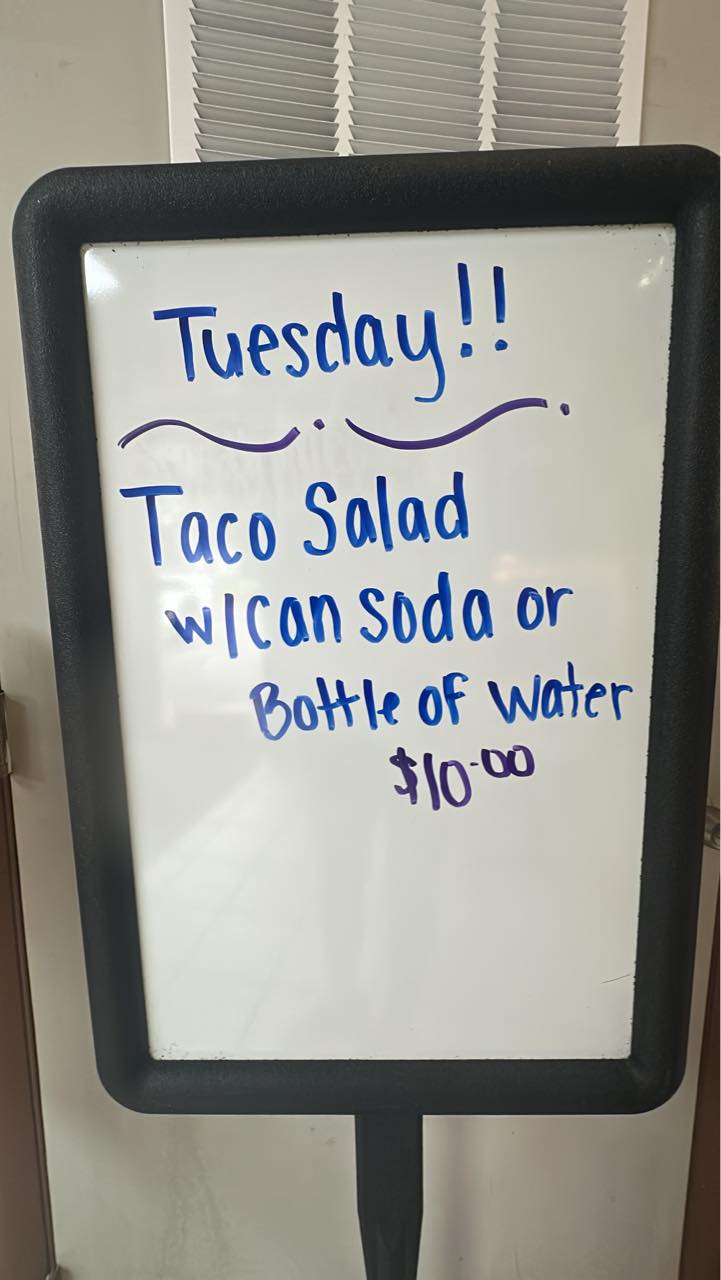 Tuesday!!
Taco Salad
w/can soda or
Bottle of water
$10.00